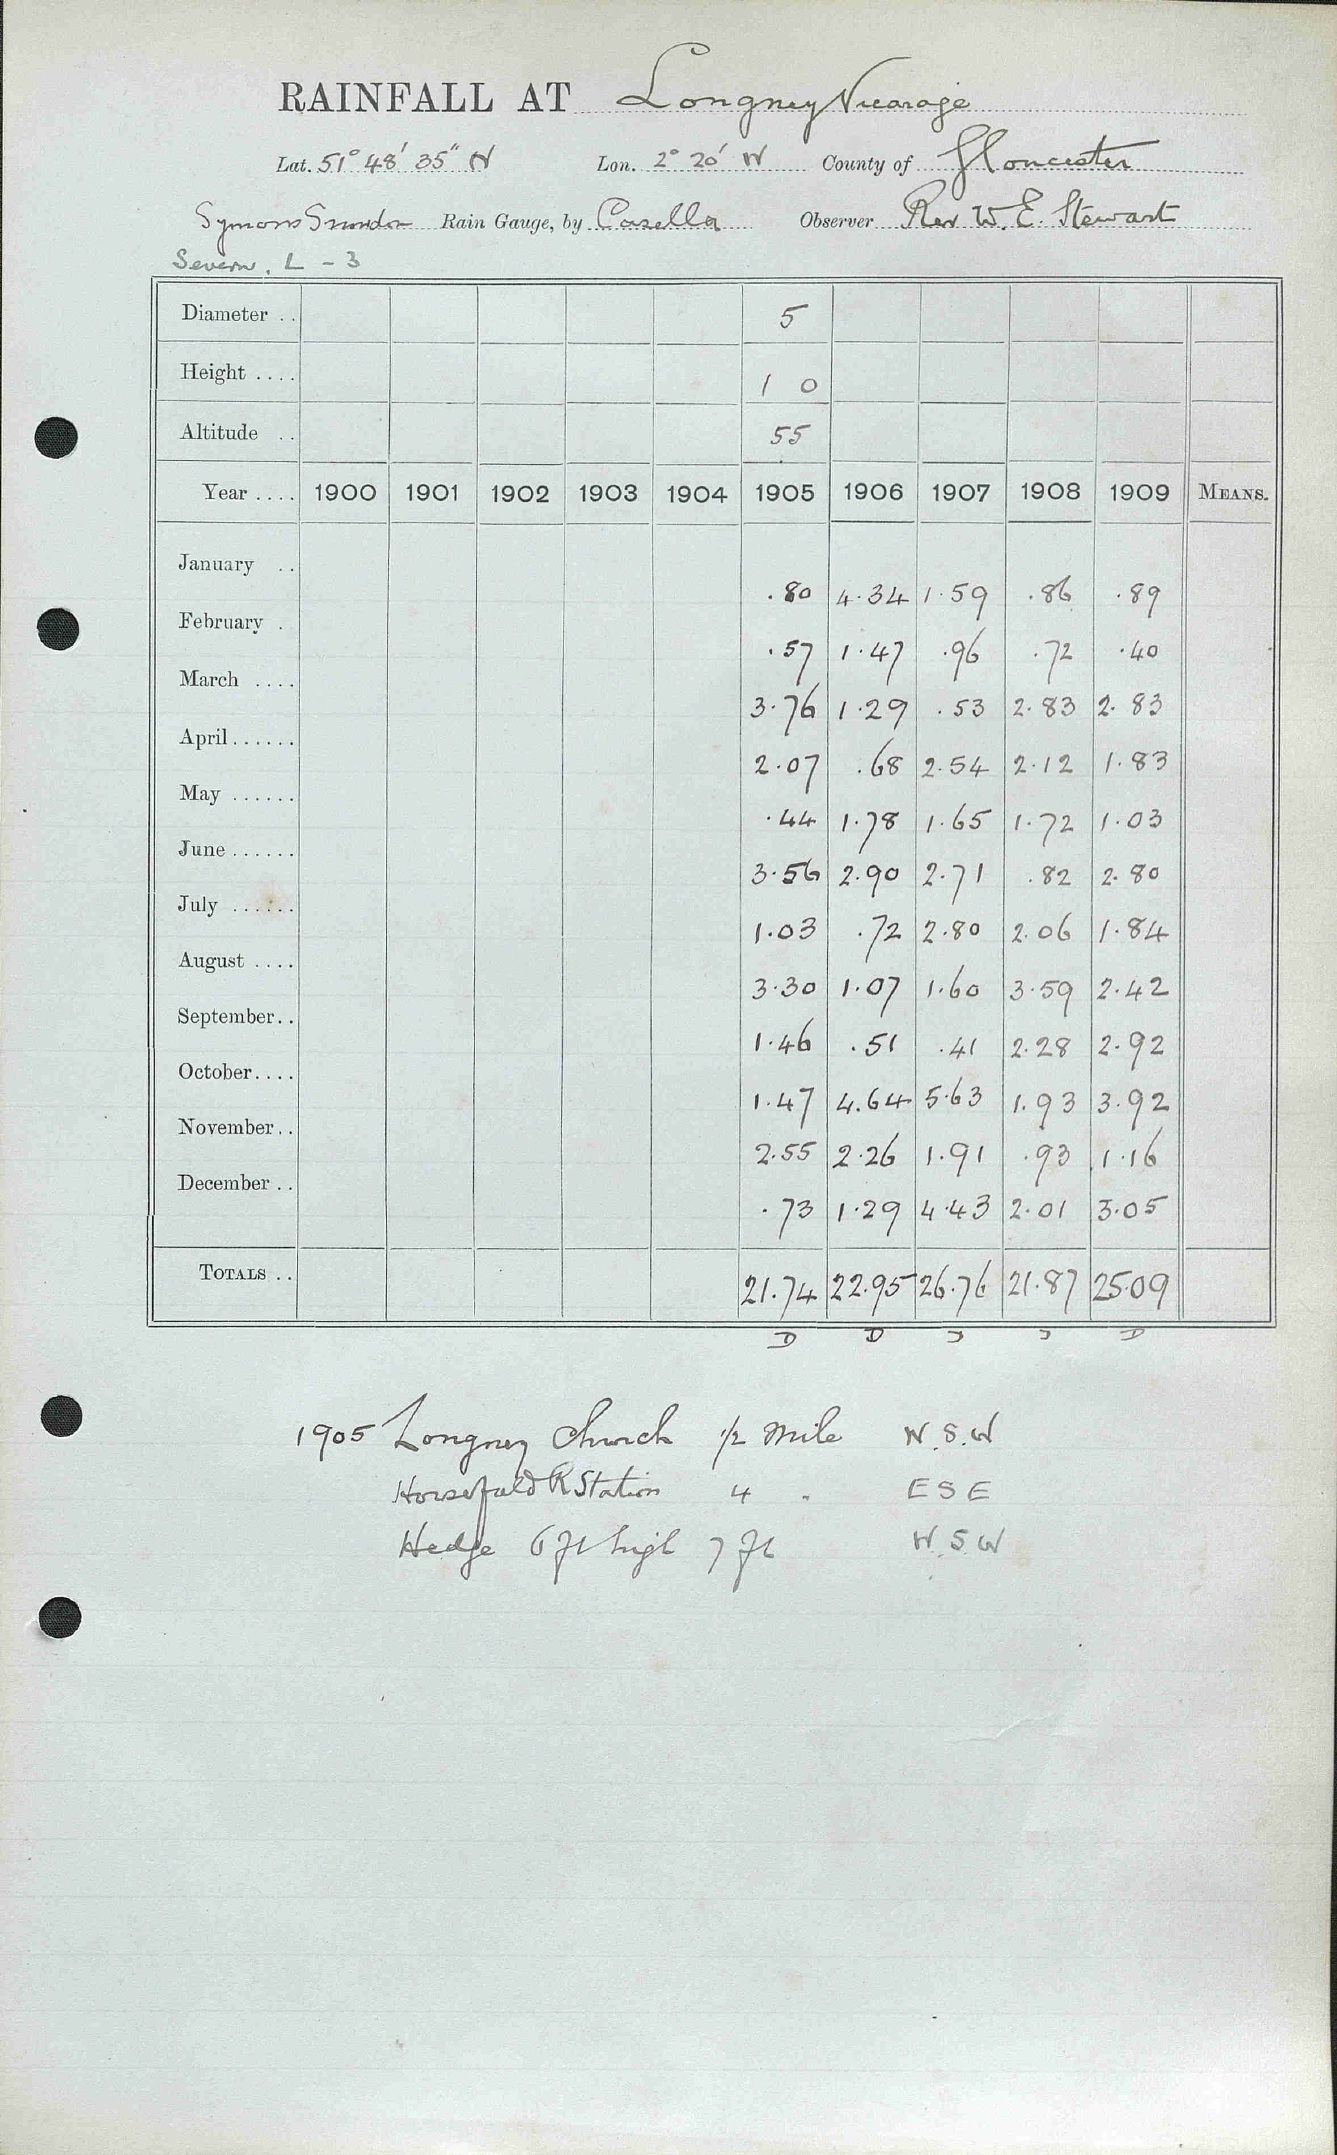 RAINFALL AT Longney Vicarage
Lat. 51° 48' 35" N Lon. 2° 20' W County of Gloucester
Symons Snowdon Rain Gauge, by Casella Observer Rev W. E. Stewart
Severn. L - 3
Diameter .. 5
Height .... 1 0
Altitude .. 55
Year .... 1900 1901 1902 1903 1904 1905 1906 1907 1908 1909 MEANS.
January .. .80 4.34 1.59 .86 .89
February . .57 1.47 .96 .72 .40
March .... 3.76 1.29 .53 2.83 2.83
April...... 2.07 .68 2.54 2.12 1.83
May ...... .44 1.78 1.65 1.72 1.03
June...... 3.56 2.90 2.71 .82 2.80
July ...... 1.03 .72 2.80 2.06 1.84
August .... 3.30 1.07 1.60 3.59 2.42
September.. 1.46 .51 .41 2.28 2.92
October.... 1.47 4.64 5.63 1.93 3.92
November.. 2.55 2.26 1.91 .93 1.16
December .. .73 1.29 4.43 2.01 3.05
TOTALS .. 21.74 22.95 26.76 21.87 25.09
D D D
1905 Longney Church 1/2 mile W.S.W
R Station 4 " E S E
Hedge 6 ft high 7 ft W.S.W